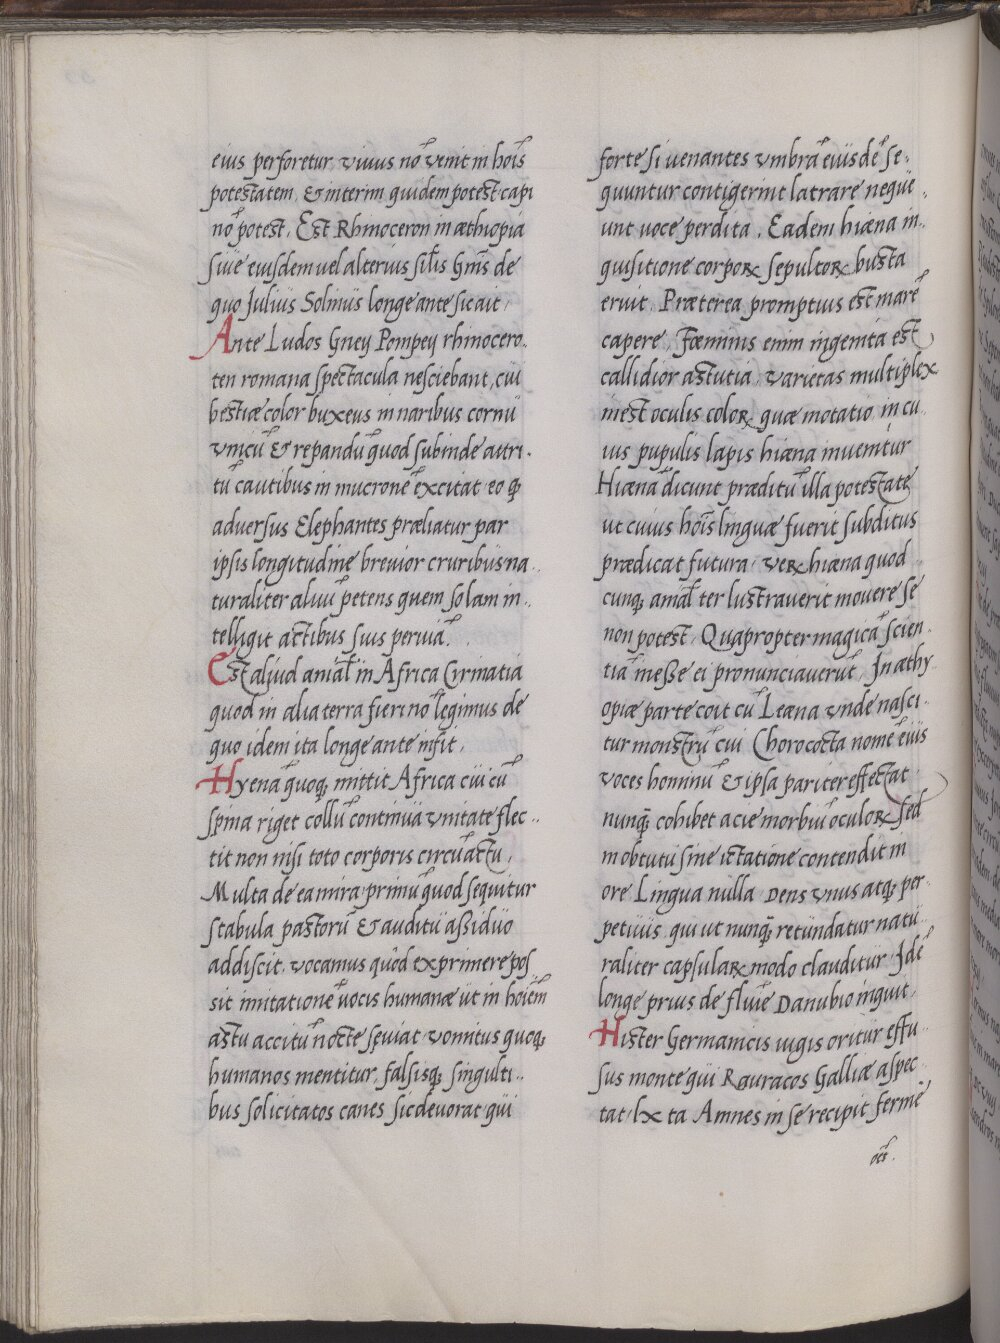 eius perforetur vivus nō venit in hoīs
potestatem, & interim quidem potest capi
nō potest. Est Rhinoceron in æthiopia
sive eiusdem vel alterius sil̃is gñis de
quo Julius Solinus longe ante sic ait,
Ante Ludos Gney Pompeÿ rhinocero.
ten romana spectacula nesciebant, cui
bestiæ color buxeus in naribus cornu
vnicū & repandū quod subinde attri.
tū cautibus in mucronē excitat eo qꝫ
adversus Elephantes præliatur par
ipsis longitudine brevior cruribus na..
turaliter alvū petens quem solam in..
telligit actibus suis perviā.
Est aliud aniāl in Africa Cyrmatia
quod in alia terra fieri nō legimus de
quo idem ita longe ante infit,
Hyena quoqꝫ mittit Africa cui cū
spīna riget collū continua vnitate flec..
tit non nisi toto corporis circūactu,
Multa de ea mira primū quod sequitur
stabula pastorū & auditu assiduo
addiscit vocamus quod exprimere pos
sit imitatione vocis humanæ ut in hoiēm
astu accitū nocte sęviat vomitus quoqꝫ
humanos mentitur, falsisqꝫ singulti..
bus solicitatos canes sic devorat qui
forte si venantes vmbrā eiusdē se.
quuntur contigerint latrare neque..
unt voce perdita, Eadem hiæna in..
quisitione corpoꝝ sepultoꝝ busta
eruit, Præterea promptius est marē
capere, Fœminis enim ingenita est
callidior astutia, varietas multiplex
inest oculis coloꝝ quæ motatio in cu..
ius pupulis lapis hiæna invenitur
Hiænā dicunt præditū illa potestate
ut cuius hoīs linguæ fuerit subditus
prædicat futura, veꝝ hiæna quod
cunqꝫ aniāl ter lustraverit movere se
non potest, Quapropter magicā scien.
tiā inesse ei pronunciaverūt, In æthy
opiæ parte coit cū Leæna vnde nasci.
tur monstrū cui Chorococta nomē eius
voces hominū & ipsa pariter effectat
nunqꝫ cohibet acie morbiū oculoꝝ sed
in obtutu sine ictatione contendit in
ore Lingua nulla Dens vnus atqꝫ per.
petuus, qui ut nunqꝫ retundatur natu..
raliter capsulaꝝ modo clauditur, Idē
longe prius de fluvie Danubio inquit,
Hister Germanicis iugis oritur effu..
sus monte qui Rauracos Galliæ aspec..
tat, lx ta Amnes in se recipit fermē
oēs.